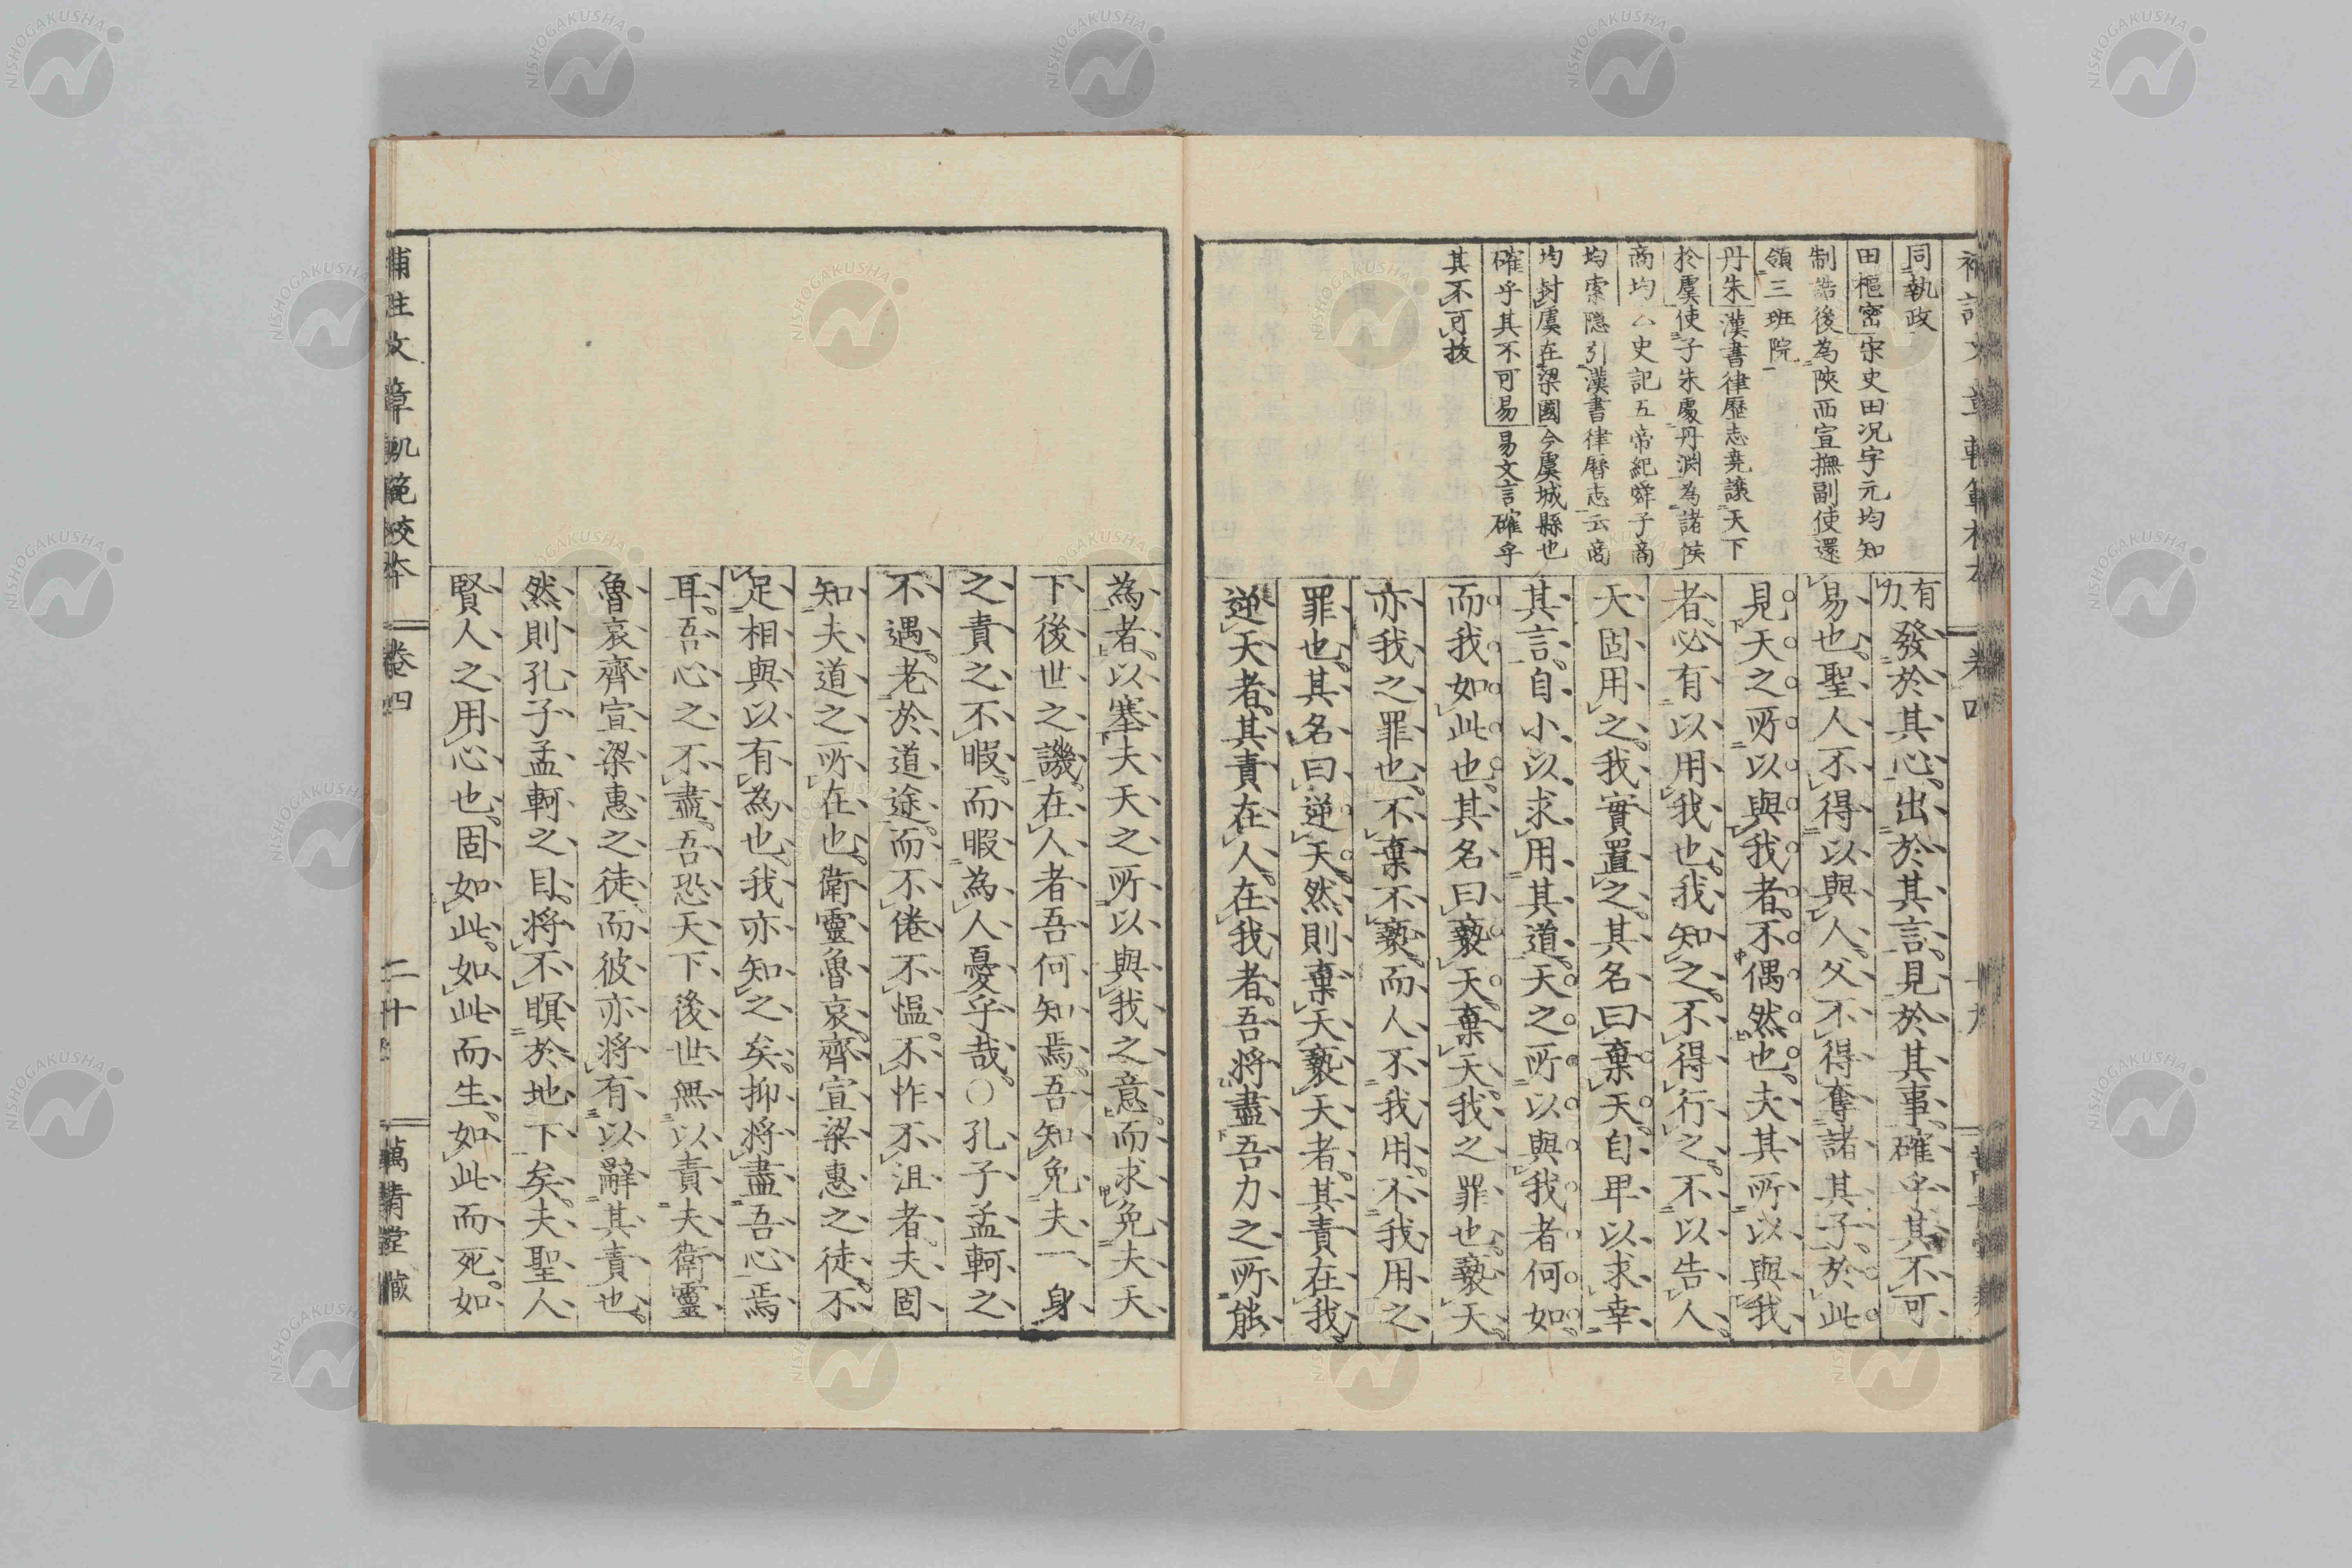 同執政
田樞密宋史田況字元均知
制誥後為陝西宣撫副使還
領三班院
丹朱漢書律歷志堯讓天下
於虞使子朱處丹淵為諸侯
商均△史記五帝紀舜子商
均索隠引漢書律曆志云商
均封虞在梁國今虞城縣也
確乎其不可易易文言確乎
其不可拔
有力發於其心。出於其言。見於其事、確乎其不可
易也。聖人不得以與人。父不得奪諸其子。於此
見天之所以與我者。不偶然也。夫其所以與我
者、必有以用我也。我知之。不得行之。不以告人。
天固用之。我實置之。其名曰棄天。自卑以求幸
其言。自小以求用其道。天之所以與我者何如。
而我如此也。其名曰褻天。棄天、我之罪也。褻天、
亦我之罪也。不棄不褻。而人不我用。不我用之
罪也。其名曰逆天。然則棄天褻天者。其責在我。
逆天者。其責在人。在我者。吾將盡吾力之所能
為者。以塞夫天之所以與我之意。而求免夫天
下後世之譏。在人者吾何知焉。吾知免夫一身
之責之不暇。而暇為人憂乎哉。〇孔子孟軻之
不遇。老於道途。而不倦不慍。不怍不沮者。夫固
知夫道之所在也。衛靈魯哀。齊宣梁惠之徒。不
足相與以有為也。我亦知之矣。抑將盡吾心焉
耳。吾心之不盡。吾恐天下後世無以責夫衛靈
魯哀齊宣梁惠之徒。而彼亦將有以辭其責也。
然則孔子孟軻之目。將不瞑於地下矣。夫聖人
賢人之用心也。固如此。如此而生。如此而死。如
卷四
二十